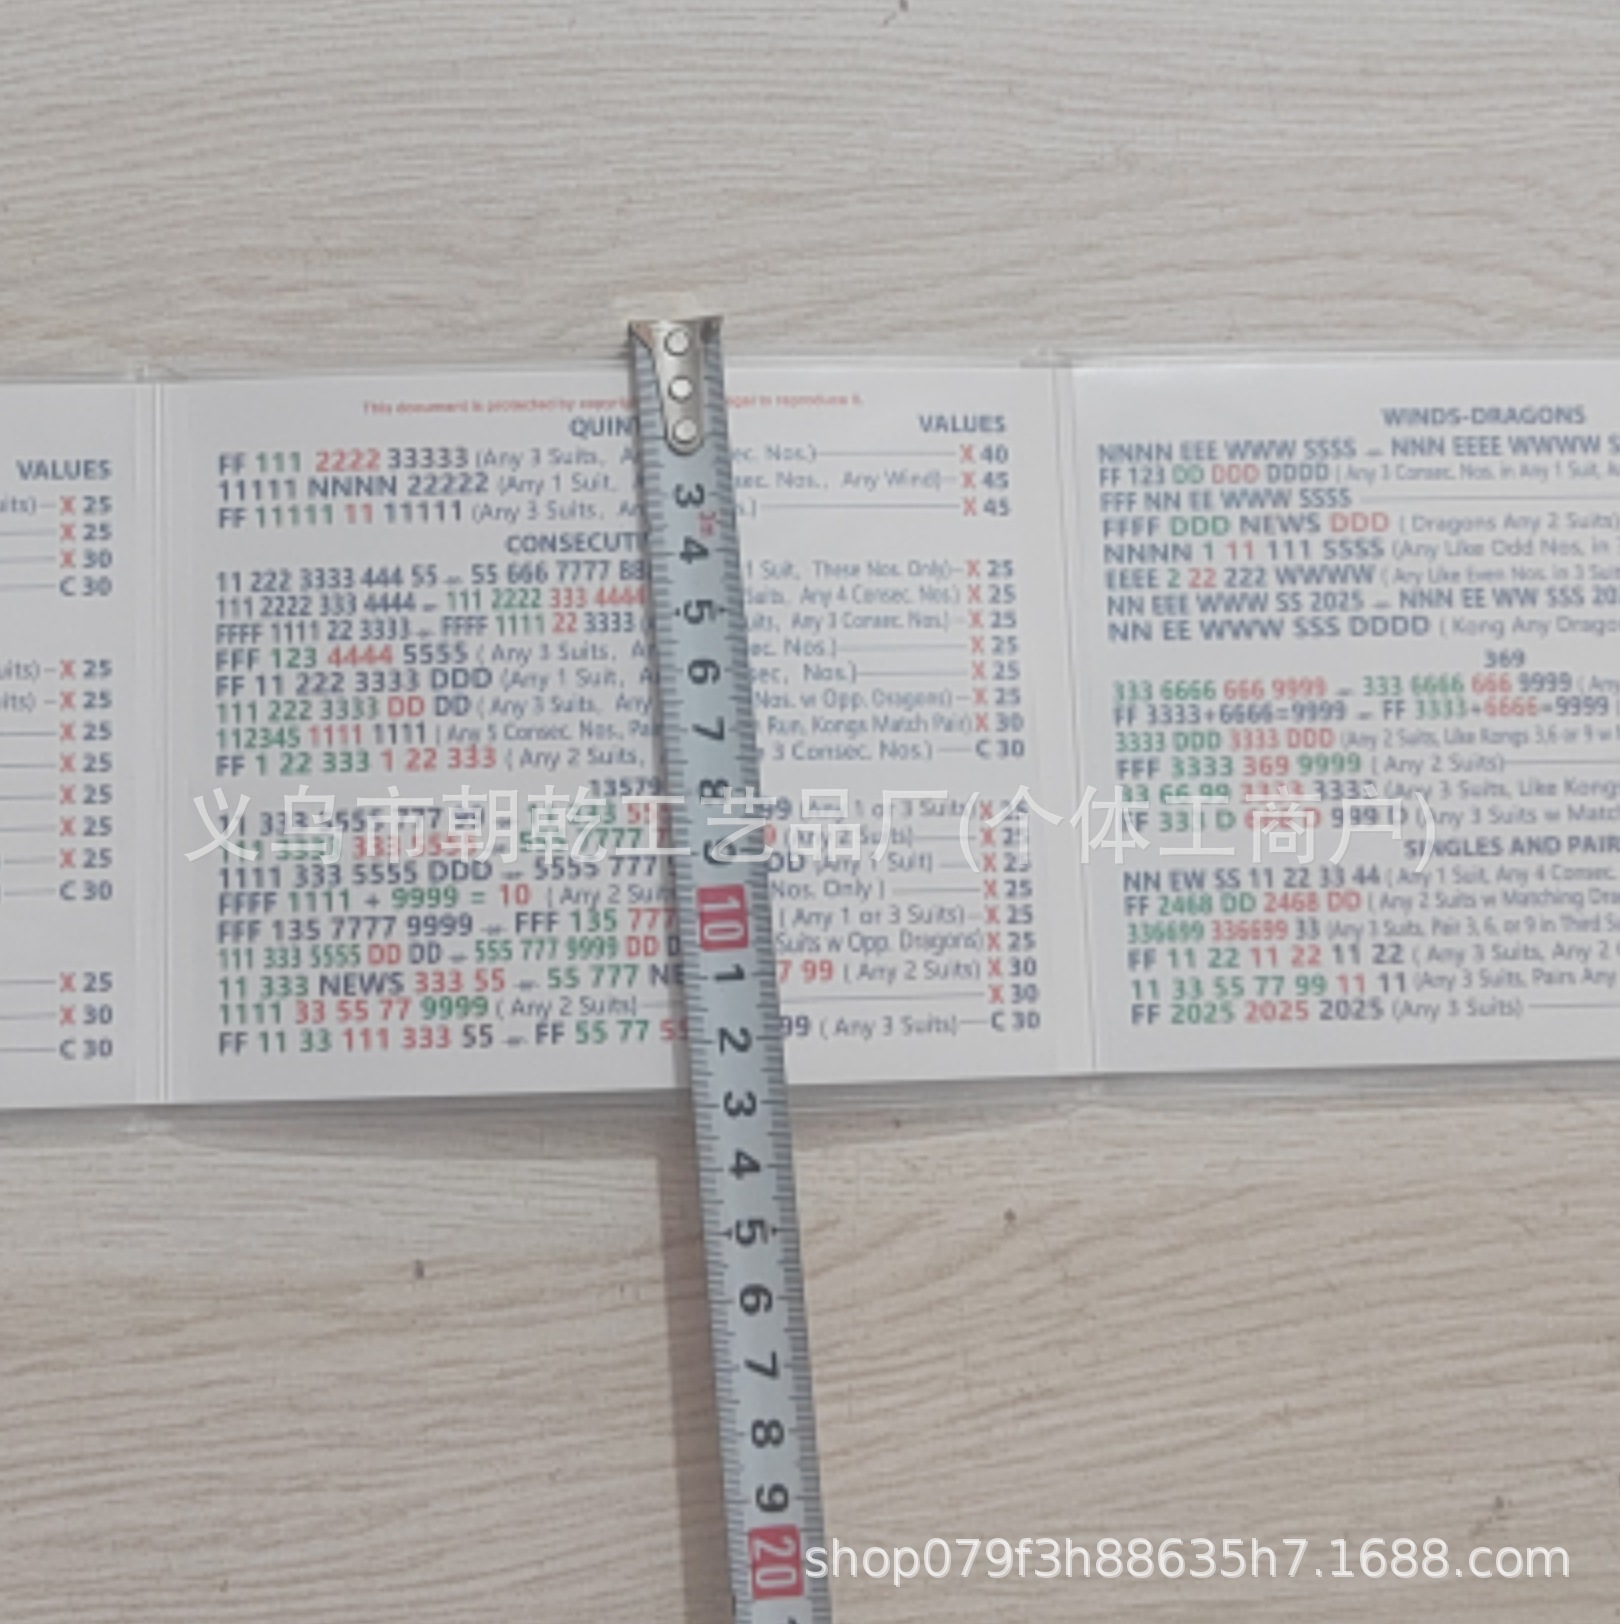 VALUES
uits)—X 25
X 25
X 30
C 30
uits)—X 25
uits)—X 25
X 25
X 25
X 25
X 25
X 25
C 30
X 25
X 30
C 30
This document is protected by
to reproduce it.
QUIN
VALUES
FF 111 2222 33333 (Any 3 Suits, ec. Nos.)—X 40
11111 NNNN 22222 (Any 1 Suit, sec. Nos., Any Wind)—X 45
FF 11111 11 11111 (Any 3 Suits, X 45
CONSECUT
11 222 3333 444 55 -or- 55 666 7777 1 Suit, These Nos. Only)—X 25
111 2222 333 4444 -or- 111 2222 333 4444 Suits, Any 4 Consec. Nos.) X 25
FFFF 1111 22 3333 -or- FFFF 1111 22 3333 uits, Any 3 Consec. Nos.)—X 25
FFF 123 4444 5555 (Any 3 Suits, ec. Nos.) X 25
FF 11 222 3333 DDD (Any 1 Suit, sec, Nos.) X 25
111 222 3333 DD DD (Any 3 Suits, Any Nos. w Opp. Dragons)—X 25
112345 1111 1111 (Any 5 Consec. Nos., Pa Run, Kongs Match Pair)X 30
FF 1 22 333 1 22 333 (Any 2 Suits, 3 Consec. Nos.)—C 30
13579
(Any 1 or 3 Suits) X 25
X 25
1111 333 5555 DDD -or- 5555 777 DD (Any 1 Suit) X 25
FFFF 1111 + 9999 = 10 (Any 2 Suit Nos. Only) X 25
FFF 135 7777 9999 -or- FFF 135 777 (Any 1 or 3 Suits)—X 25
111 333 5555 DD DD -or- 555 777 9999 DD D Suits w Opp. Dragons)X 25
11 333 NEWS 333 55 -or- 55 777 NE 7 99 (Any 2 Suits) X 30
1111 33 55 77 9999 (Any 2 Suits) X 30
FF 11 33 111 333 55 -or- FF 55 77 55 99 (Any 3 Suits)—C 30
WINDS-DRAGONS
NNNN EEE WWW SSSS -or- NNN EEEE WWWW S
FF 123 DD DDD DDDD (Any 3 Consec. Nos. in Any 1 Suit, A
FFF NN EE WWW SSSS
FFFF DDD NEWS DDD (Dragons Any 2 Suits)
NNNN 1 11 111 SSSS (Any Like Odd Nos. in
EEEE 2 22 222 WWWW (Any Like Even Nos. in 3 Suit
NN EEE WWW SS 2025 -or- NNN EE WW SSS 20
NN EE WWW SSS DDDD (Kong Any Drago
369
333 6666 666 9999 -or- 333 6666 666 9999 (An
FF 3333+6666=9999 -or- FF 3333+6666=9999
3333 DDD 3333 DDD (Any 2 Suits, Like Kongs 3,6 or 9 w
FFF 3333 369 9999 (Any 2 Suits)
33 66 99 3333 3333 (Any 3 Suits, Like Kong
FF 333 D 999 D (Any 3 Suits w Matc
SINGLES AND PAIR
NN EW SS 11 22 33 44 (Any 1 Suit, Any 4 Consec.
FF 2468 DD 2468 DD (Any 2 Suits w Matching Dra
336699 336699 33 (Any 3 Suits, Pair 3, 6, or 9 in Third S
FF 11 22 11 22 11 22 (Any 3 Suits, Any 2
11 33 55 77 99 11 11 (Any 3 Suits, Pairs Any
FF 2025 2025 2025 (Any 3 Suits)
3
4
5
6
7
8
9
10
1
2
3
4
5
6
7
8
9
20
义乌市朝乾工艺品厂(个体工商户)
shop079f3h88635h7.1688.com